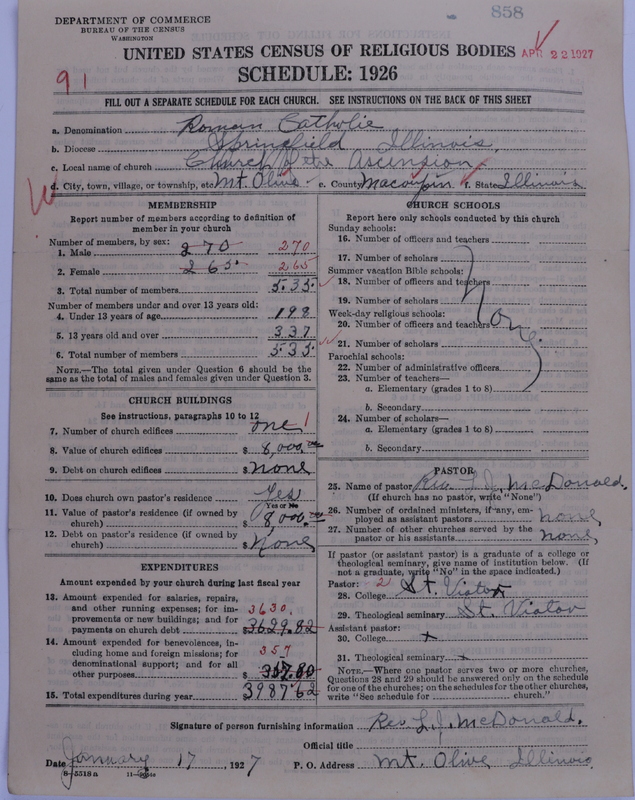 DEPARTMENT OF COMMERCE
BUREAU OF THE CENSUS
WASHINGTON
858
UNITED STATES CENSUS OF RELIGIOUS BODIES
APR 22 1927
SCHEDULE: 1926
91
FILL OUT A SEPARATE SCHEDULE FOR EACH CHURCH. SEE INSTRUCTIONS ON THE BACK OF THIS SHEET
a. Denomination Roman Catholic
b. Diocese Springfield Illinois,
c. Local name of church Church of the Ascension
d. City, town, village, or township, etc. Mt. Olive e. County Macoupin f. State Illinois
MEMBERSHIP
Report number of members according to definition of
member in your church
Number of members, by sex:
1. Male 270 270
2. Female 265. 265
3. Total number of members 535.
Number of members under and over 13 years old:
4. Under 13 years of age 198
5. 13 years old and over 337
6. Total number of members 535.
NOTE.—The total given under Question 6 should be the
same as the total of males and females given under Question 3.
CHURCH BUILDINGS
See instructions, paragraphs 10 to 12
7. Number of church edifices one 1
8. Value of church edifices $ 8,000
9. Debt on church edifices $ none
10. Does church own pastor's residence Yes
Yes or No
11. Value of pastor's residence (if owned by
church) $ 8,000
12. Debt on pastor's residence (if owned by
church) $ None
EXPENDITURES
Amount expended by your church during last fiscal year
13. Amount expended for salaries, repairs,
and other running expenses; for im-
provements or new buildings; and for
payments on church debt 3630. $ 3629.82
14. Amount expended for benevolences, in-
cluding home and foreign missions; for
denominational support; and for all
other purposes 357 $ 357.80
15. Total expenditures during year $ 3987.62
CHURCH SCHOOLS
Report here only schools conducted by this church
Sunday schools:
16. Number of officers and teachers
17. Number of scholars
Summer vacation Bible schools:
18. Number of officers and teachers
19. Number of scholars
Week-day religious schools:
20. Number of officers and teachers
none
21. Number of scholars
Parochial schools:
22. Number of administrative officers
23. Number of teachers—
a. Elementary (grades 1 to 8)
b. Secondary
24. Number of scholars—
a. Elementary (grades 1 to 8)
b. Secondary
PASTOR
25. Name of pastor Rev. L. J. McDonald.
(If church has no pastor, write "None")
26. Number of ordained ministers, if any, em-
ployed as assistant pastors none
27. Number of other churches served by the
pastor or his assistants none
If pastor (or assistant pastor) is a graduate of a college or
theological seminary, give name of institution below. (If
not a graduate, write "No" in the space indicated.)
Pastor: 2
28. College St. Viator
29. Theological seminary St. Viator
Assistant pastor:
30. College x
31. Theological seminary x
NOTE.—Where one pastor serves two or more churches,
Questions 28 and 29 should be answered only on the schedule
for one of the churches; on the schedules for the other churches,
write "See schedule for church."
Signature of person furnishing information Rev L. J. McDonald.
Official title
Date January 17, 1927 P. O. Address Mt. Olive Illinois
8—5518a